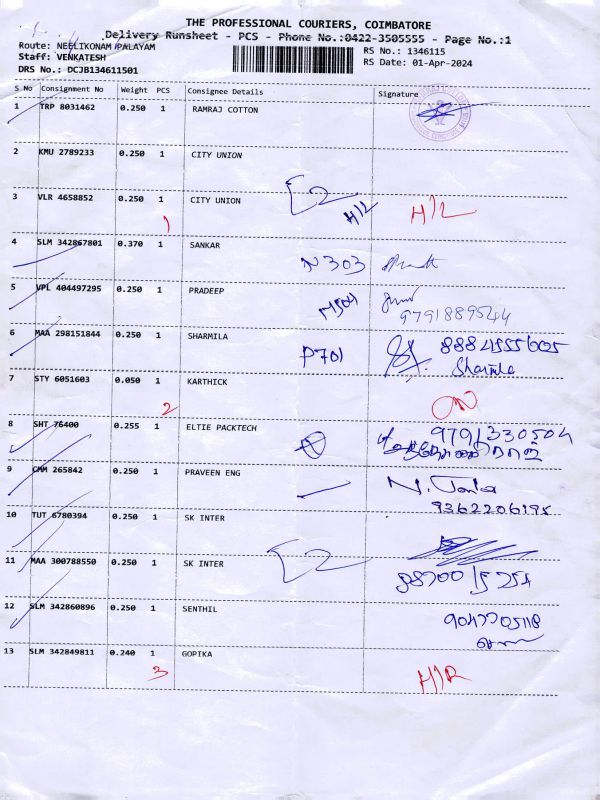 THE PROFESSIONAL COURIERS, COIMBATORE
Delivery Runsheet - PCS - Phone No.:0422-3505555 - Page No.:1
Route: NEELIKONAM PALAYAM
RS No.: 1346115
Staff: VENKATESH
RS Date: 01-Apr-2024
DRS No.: DCJB134611501
S No Consignment No Weight PCS Consignee Details Signature
1 TRP 8031462 0.250 1 RAMRAJ COTTON
2 KMU 2789233 0.250 1 CITY UNION
3 VLR 4658852 0.250 1 CITY UNION
1
4 SLM 342867801 0.370 1 SANKAR N303
5 VPL 404497295 0.250 1 PRADEEP
6 MAA 298151844 0.250 1 SHARMILA P701
Sharmila
7 STY 6051603 0.050 1 KARTHICK
2
8 SHT 76400 0.255 1 ELTIE PACKTECH 9791330504
9 CMM 265842 0.250 1 PRAVEEN ENG
9362206195
10 TUT 6780394 0.250 1 SK INTER
11 MAA 300788550 0.250 1 SK INTER
12 SLM 342860896 0.250 1 SENTHIL
13 SLM 342849811 0.240 1 GOPIKA
3